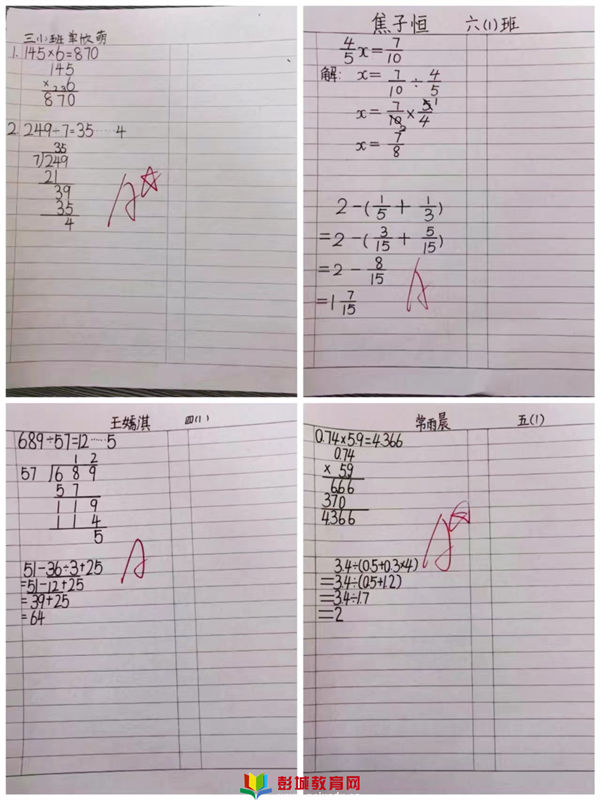 三(2)班 单忻萌
1. 145×6=870
145
× 2 3 6
870
2. 249÷7=35……4
35
7)249
21
39
35
4
A☆
焦子恒 六(1)班
4/5 x = 7/10
解: x = 7/10 ÷ 4/5
x = 7/10 × 5/4
x = 7/8
2-(1/5+1/3)
=2-(3/15+5/15)
=2-8/15
=1 7/15
A
王嫣淇 四(1)
689÷57=12……5
12
57)689
57
119
114
5
51-36÷3+25
=51-12+25
=39+25
=64
A
常雨晨 五(1)
0.74×5.9=4.366
0.74
× 5.9
666
370
4.366
A☆
3.4÷(0.5+0.3×4)
=3.4÷(0.5+1.2)
=3.4÷1.7
=2
彭城教育网